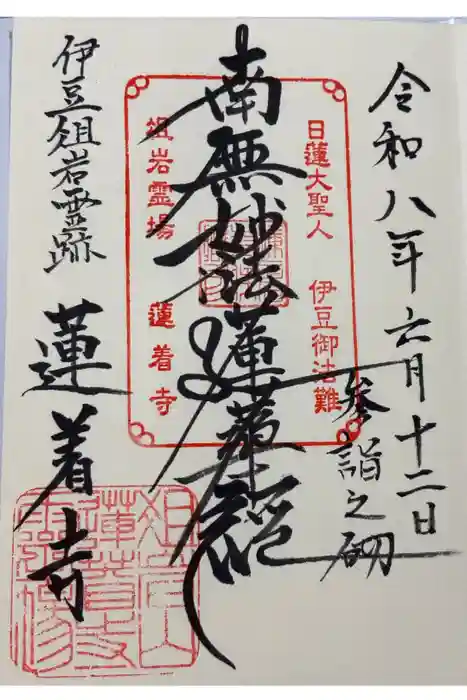 令和八年六月十二日
参詣之砌
日蓮大聖人 伊豆御法難
南無妙法蓮華経
俎岩霊場 蓮着寺
伊豆俎岩霊跡
蓮着寺